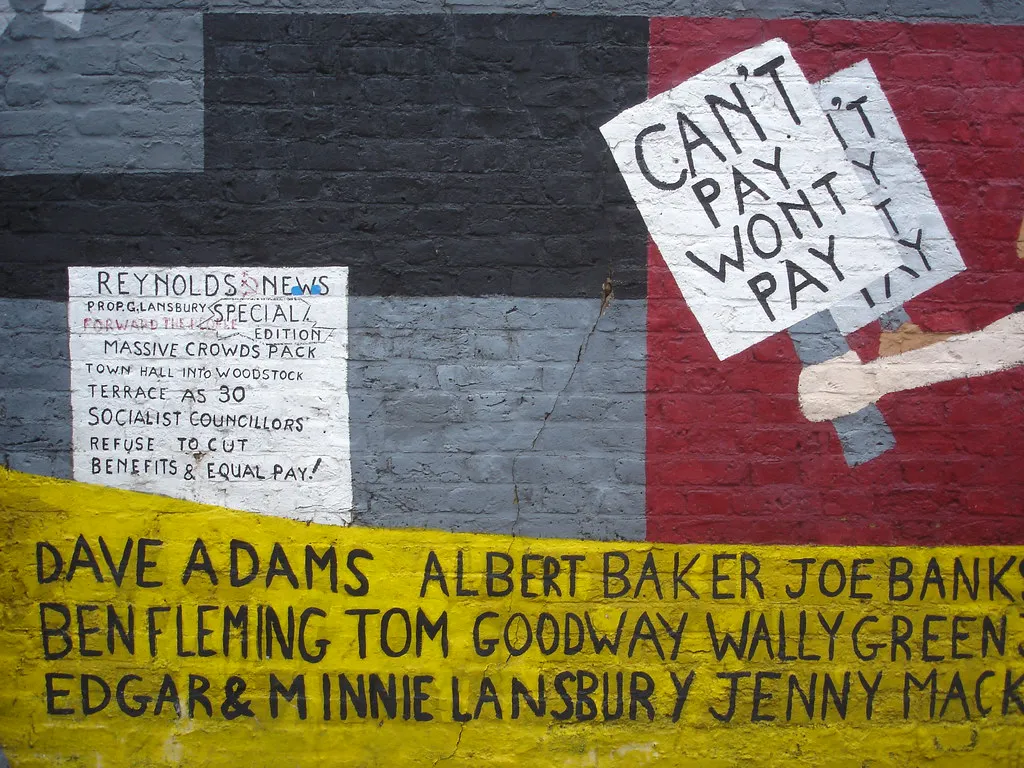 CAN'T
PAY
WONT
PAY
'T
Y
TY
REYNOLDS NEWS
PROP.G.LANSBURY SPECIAL
FORWARD THE PEOPLE EDITION
MASSIVE CROWDS PACK
TOWN HALL INTO WOODSTOCK
TERRACE AS 30
SOCIALIST COUNCILLORS
REFUSE TO CUT
BENEFITS & EQUAL PAY!
DAVE ADAMS ALBERT BAKER JOE BANKS
BEN FLEMING TOM GOODWAY WALLY GREEN
EDGAR & MINNIE LANSBURY JENNY MACK